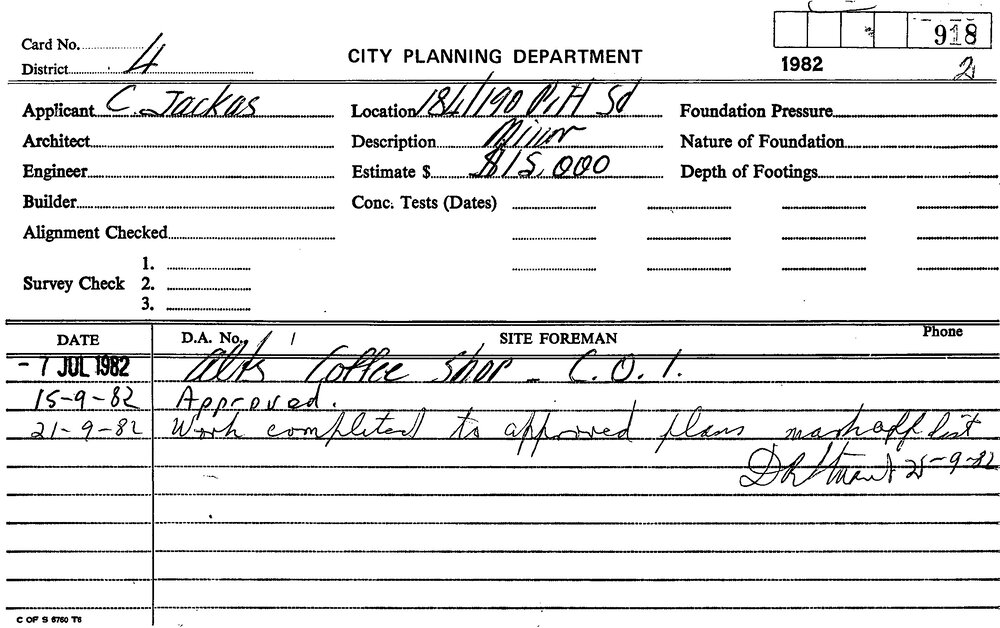 918
Card No.
District 4
CITY PLANNING DEPARTMENT
1982
2
Applicant C. Jackas Location 184/190 Pitt St Foundation Pressure
Architect Description Minor Nature of Foundation
Engineer Estimate $ $15,000 Depth of Footings
Builder Conc. Tests (Dates)
Alignment Checked
1.
Survey Check 2.
3.
DATE D.A. No. SITE FOREMAN Phone
- 7 JUL 1982 Alts Coffee Shop - C.O.I.
15-9-82 Approved.
21-9-82 Work completed to approved plans mark off list
-9-82
C OF S 6760 T6